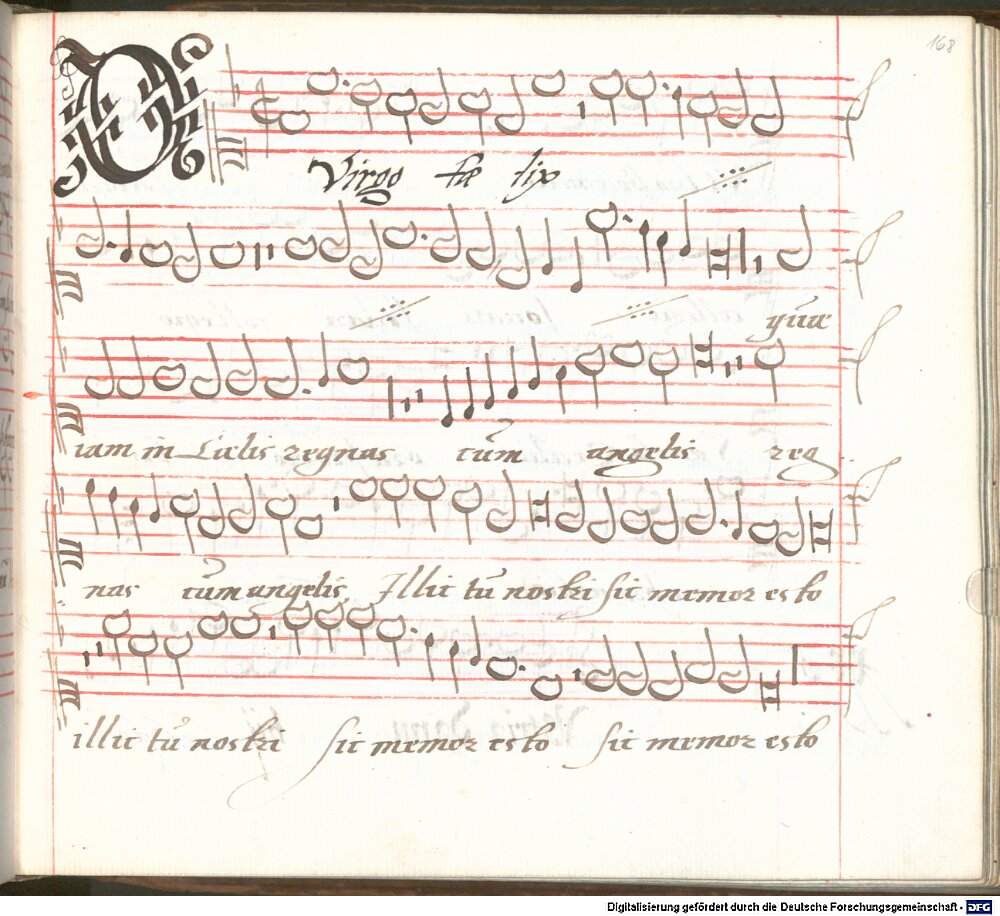 168
O
Virgo fœ lix
quæ
iam in Cœlis regnas cum̄ angelis reg
nas cum̄ angelis Illic tu nostri sic memor esto
illic tu nostri sic memor esto sic memor esto
Digitalisierung gefördert durch die Deutsche Forschungsgemeinschaft - DFG